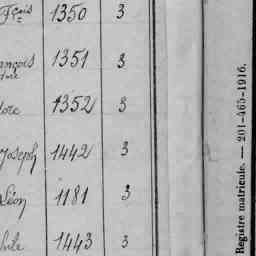 Fçois 1350 3
ançois 1351 3
dore 1352 3
Joseph 1442 3
Léon 1181 3
hile 1443 3
Registre matricule. — 201-465-1916.